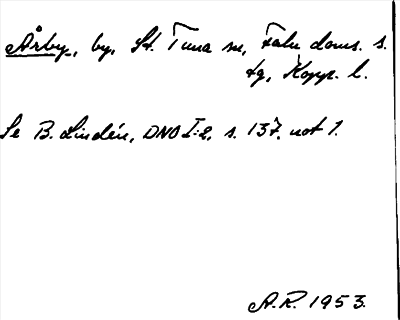 Årby, by, St. Tuna sn, Falu doms. s.
tg, Kopp. l.
Se B. Lindén, DNO I:2, s. 137, not 1.
A.R. 1953.